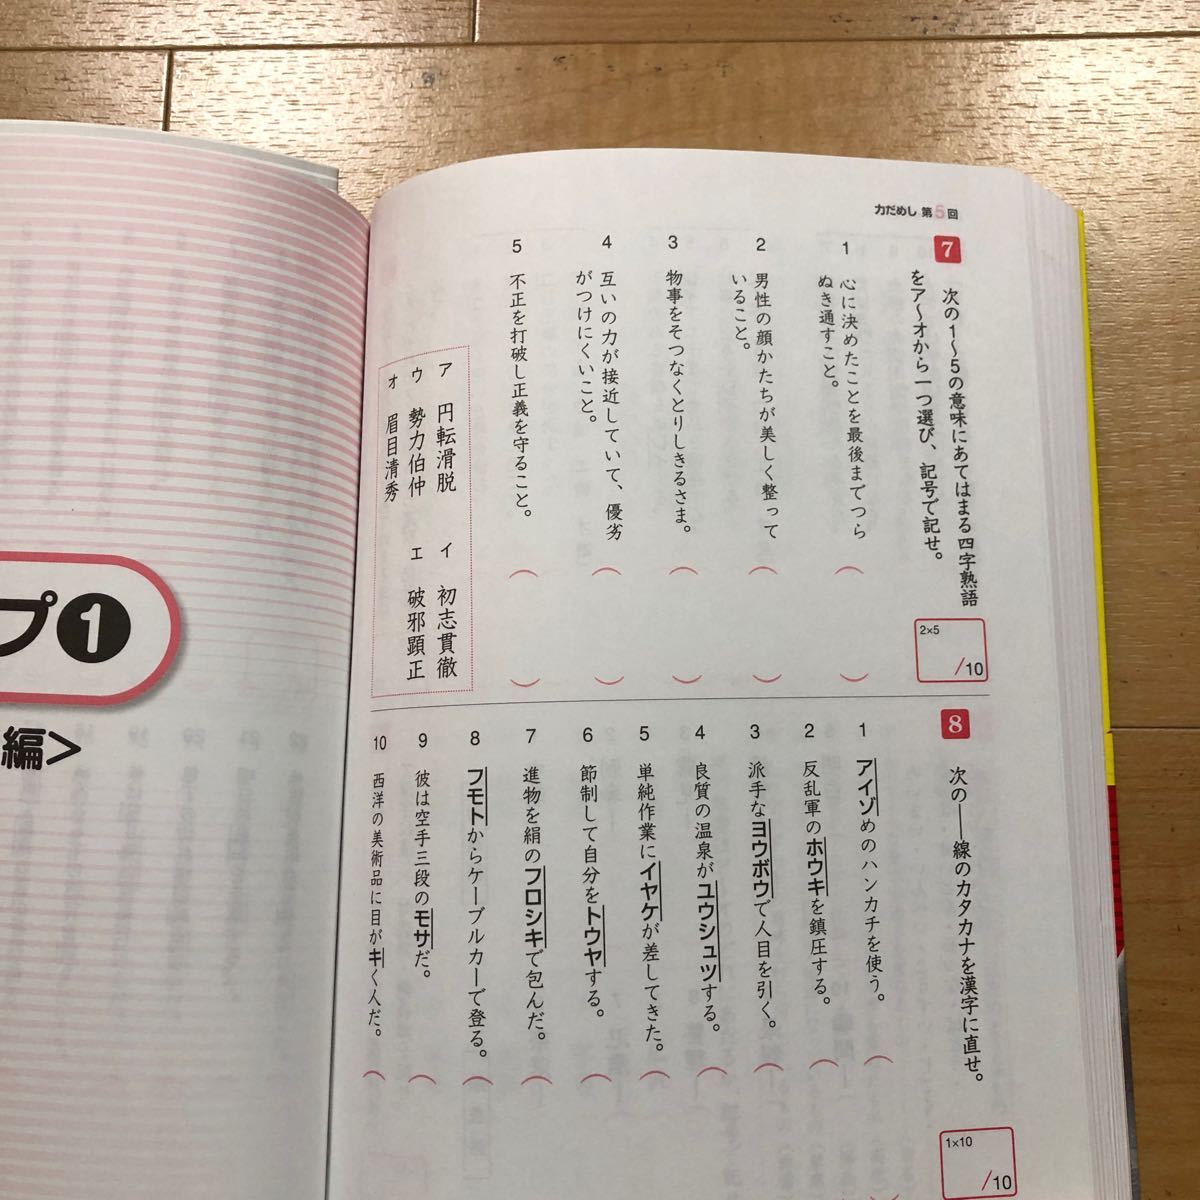 力だめし 第5回
7
次の1〜5の意味にあてはまる四字熟語
をア〜オから一つ選び、記号で記せ。
2×5
/10
1 心に決めたことを最後までつら
ぬき通すこと。
( )
2 男性の顔かたちが美しく整って
いること。
( )
3 物事をそつなくとりしきるさま。
( )
4 互いの力が接近していて、優劣
がつけにくいこと。
( )
5 不正を打破し正義を守ること。
( )
ア 円転滑脱 イ 初志貫徹
ウ 勢力伯仲 エ 破邪顕正
オ 眉目清秀
8
次の──線のカタカナを漢字に直せ。
1×10
/10
1 アイゾめのハンカチを使う。(
2 反乱軍のホウキを鎮圧する。(
3 派手なヨウボウで人目を引く。(
4 良質の温泉がユウシュツする。(
5 単純作業にイヤケが差してきた。(
6 節制して自分をトウヤする。(
7 進物を絹のフロシキで包んだ。(
8 フモトからケーブルカーで登る。(
9 彼は空手三段のモサだ。(
10 西洋の美術品に目がキく人だ。(
プ❶
編>